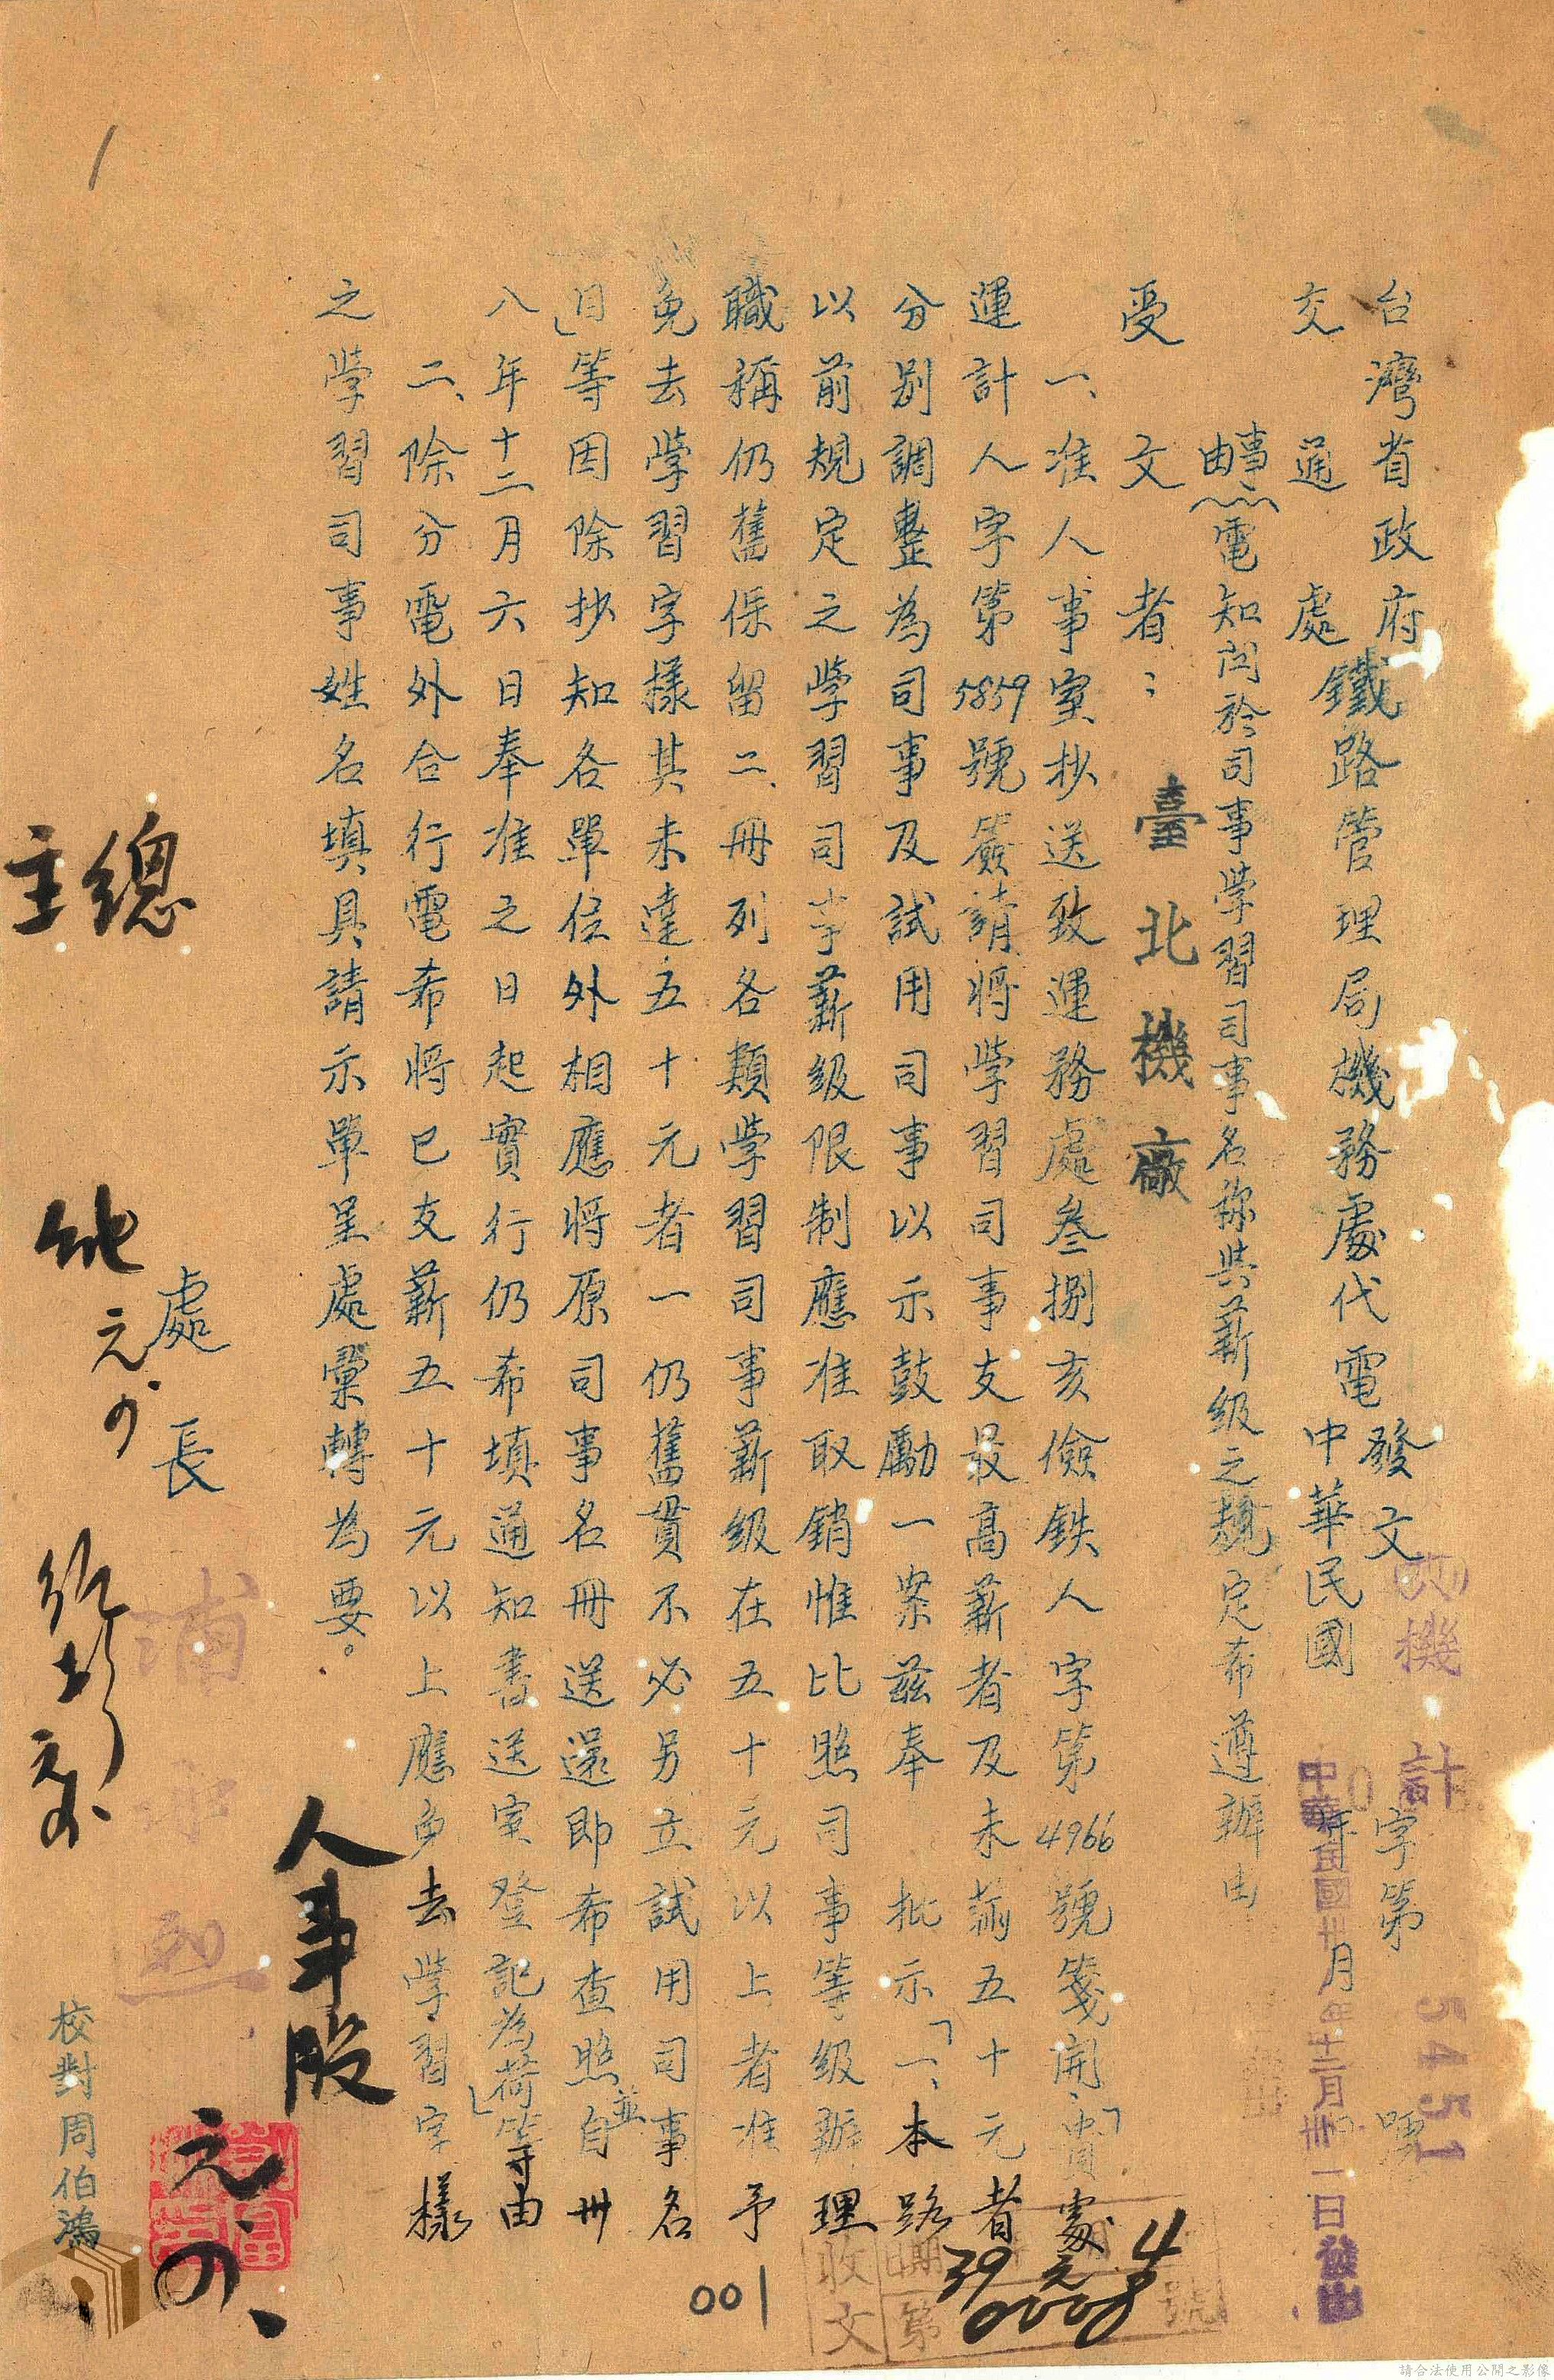 台灣省政府
交通處
鐵路管理局機務處代電
發文
機計字第5451號
中華民國 年 月
中華民國卅 年十二月卅一日發出
事由
電知関於司事學習司事名称與薪級之規定希遵辦由
受文者：臺北機廠
一、准人事室抄送致運務處叁捌亥儉鉄人字第4966號箋開、「貴處
運計人字第5859號簽請將學習司事支最高薪者及未滿五十元者
分别調整為司事及試用司事以示鼓勵一案茲奉 批示「一、本路
以前規定之學習司事薪級限制應准取銷惟比照司事等級辦理
職稱仍舊保留二、冊列各類學習司事薪級在五十元以上者准予
免去學習字樣其未達五十元者一仍舊貫不必另立試用司事名
目」等因除抄知各單位外相應將原司事名冊送還即希查照並自卅
八年十二月六日奉准之日起實行仍希填通知書送室登記為荷」等由
二、除分電外合行電希將已支薪五十元以上應免去學習字樣
之學習司事姓名填具請示單呈處彙轉為要。
處長
人事股
元、
總
主
元
校對周伯鴻
收文
第
號
39
元
4
0008
001
1
請合法使用公開之影像